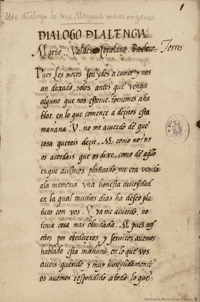 DIALOGO D LA LENGA
Marcio Valdes Coriolano Torres
Pues los moços son ydos a comer y nos
an dexado solos antes que venga
alguno que nos estorve tornemos a ha
blar en lo que comence a deziros esta
mañana. V. no me acuerdo de que
cosa quereis dezir. M. como no? no
os acordais que os dixe, como de aq̃llo
en que aviamos platicado me era venida
a la memoria una honesta curiosidad
en la qual muchos dias ha deseo pla
ticar con vos. V. ya me acuerdo, no
tenia cosa mas olvidada. M. pues nos
otros por obedeceros y serviros avemos
hablado esta mañana en lo que vos
aveis querido y muy cumplidamente
os avemos respondido a todo lo que